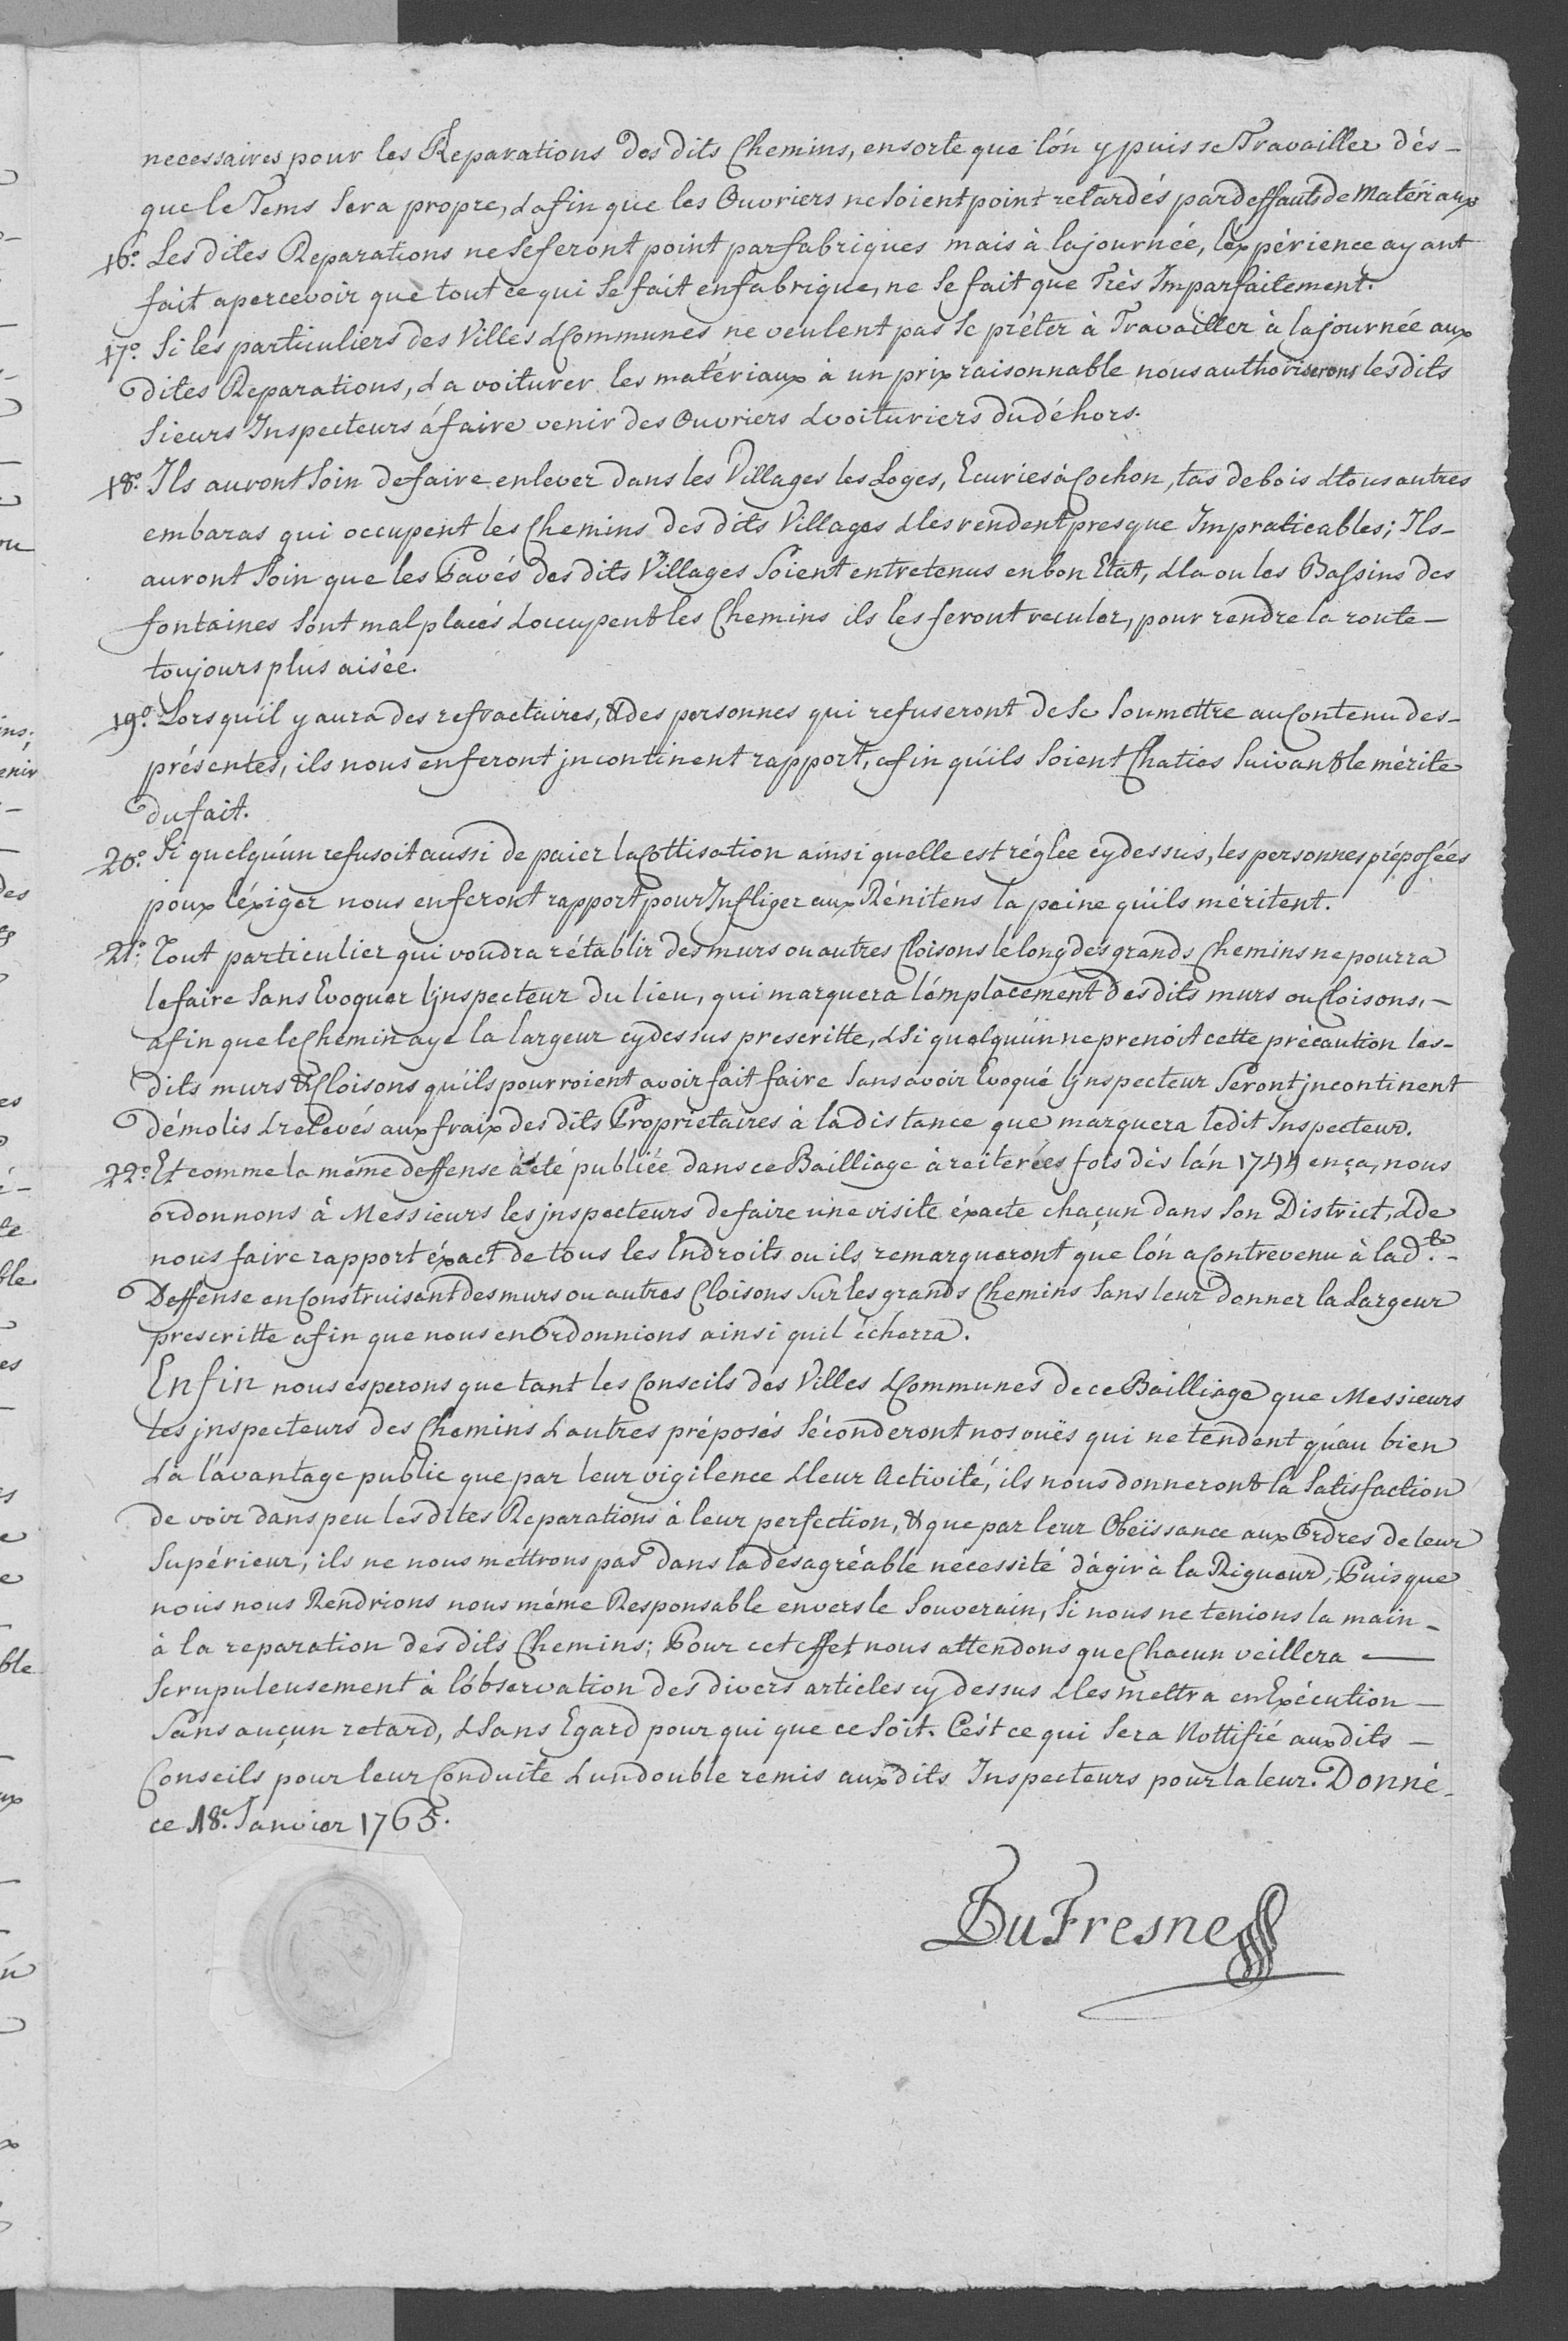 necessaires pour les Reparations des dits Chemins, ensorte que l'ón y puisse Travailler dés-
que le Tems sera propre, & afin que les Ouvriers ne soient point retardés par deffauts de Matériaux
16.º Les dites Reparations ne se feront point par fabriques mais à la journée, l'éxpérience ayant
fait apercevoir que tout ce qui se fait en fabrique, ne se fait que Très Imparfaitement.
17.º Si les particuliers des Villes & Communes ne veulent pas se préter à Travailler à la journée aux
dites Reparations, & a voiturer les matériaux à un prix raisonnable nous authoriserons les dits
Sieurs Inspecteurs á faire venir des Ouvriers & voituriers du déhors.
18.º Ils auront soin de faire enlever dans les Villages les Loges, Ecuries à Cochon, tas de bois & tous autres
embaras qui occupent les Chemins des dits Villages & les rendent presque Impraticables; Ils-
auront soin que les Pavés des dits Villages soient entretenus en bon Etat, & la ou les Bassins des
fontaines sont mal placés & occupent les Chemins ils les feront reculer, pour rendre la route-
toujours plus aisée.
19.º Lorsqu'il y aura des refractaires, & des personnes qui refuseront de se soumettre au Contenu des-
présentes, ils nous en feront jncontinent rapport, afin qu'ils soient Chaties suivant le mérite
du fait.
20.º Si quelqu'ún refusoit aussi de paier la Cottisation ainsi quelle est réglée cy dessus, les personnes préposées
pour l'éxiger nous en feront rapport pour Infliger aux Rénitens la peine qu'ils méritent.
21.º Tout particulier qui voudra rétablir des murs ou autres Cloisons le long des grands Chemins ne pourra
le faire sans Evoquer l'jnspecteur du lieu, qui marquera l'émplacement des dits murs ou Cloisons,-
afin que le Chemin aye la largeur cy dessus prescritte, & si quelqu'ún ne prenoit cette précaution les-
dits murs & Cloisons qu'ils pourroient avoir fait faire sans avoir Evoqué l'jnspecteur seront jncontinent
démolis & relevés aux fraix des dits Proprietaires à la distance que marquera ledit Inspecteur.
22.º Et comme la méme deffense à été publiée dans ce Bailliage à reiterées fois dès l'án 1744 ença, nous
ordonnons à Messieurs les jnspecteurs de faire une visite éxacte chaçun dans son District, & de
nous faire rapport éxact de tous les Endroits ou ils remarqueront que l'ón a Contrevenu à la d.te-
Deffense en Construisant des murs ou autres Cloisons sur les grands Chemins sans leur donner la Largeur
prescritte afin que nous en Ordonnions ainsi quil écherra.
Enfin nous esperons que tant les Conseils des Villes & Communes de ce Bailliage que Messieurs
les jnspecteurs des Chemins & autres préposés séconderont nos vuës qui ne tendent qu'áu bien
& à l'ávantage public que par leur vigilence & leur Activité, ils nous donneront la satisfaction
de voir dans peu les dites Reparations à leur perfection, & que par leur Obeïssance aux Ordres de leur
Supérieur, ils ne nous mettrons pas dans la désagréable necessité d'ágir à la Rigueur, Puisque
nous nous Rendrions nous méme Responsable envers le Souverain, si nous ne tenions la main-
à la reparation des dits Chemins; Pour cet effet nous attendons que Chacun veillera —
Scrupuleusement à l'óbservation des divers articles cy dessus & les mettra en Exécution-
sans auçun retard, & sans Egard pour qui que ce soit. C'est ce qui sera Nottifié aux dits-
Conseils pour leur Conduite & un double remis aux dits Inspecteurs pour la leur. Donné-
ce 18.e Janvier 1765.
DuFresne